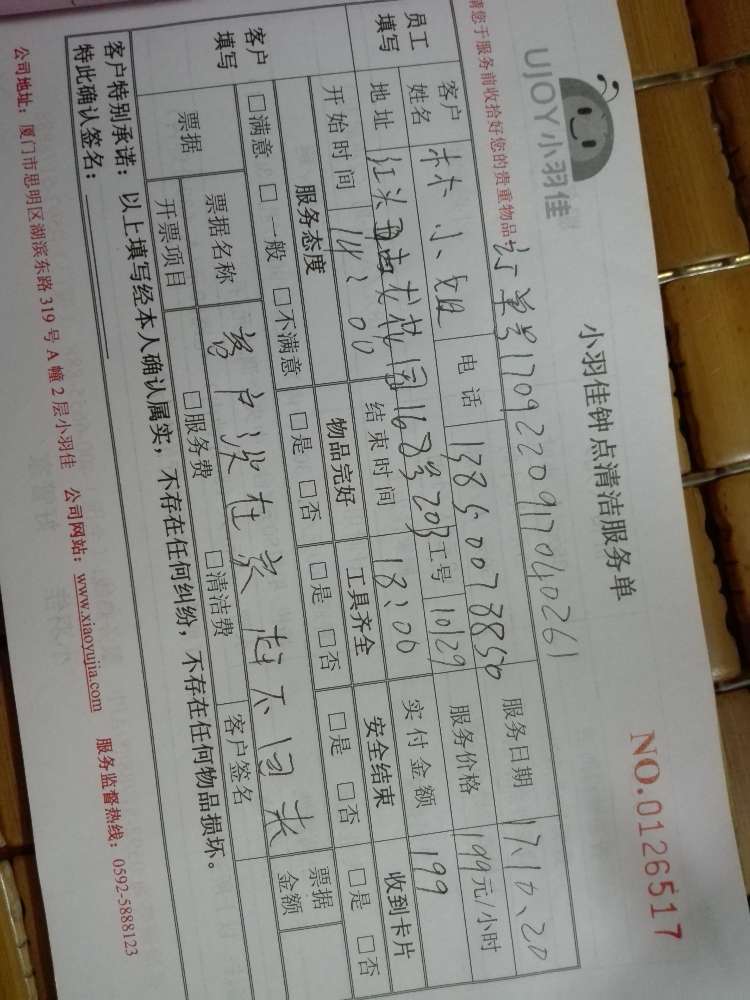 UJOY小羽佳
小羽佳钟点清洁服务单
NO.0126517
请您于服务前收拾好您的贵重物品
订单号1709220917040261
员工填写 客户姓名 林小姐 电话 13850078850 服务日期 17、10、20
地址 龙花园168号203 工号 10129 服务价格 199元/小时
开始时间 14:00 结束时间 18:00 实付金额 199
客户填写 服务态度 物品完好 工具齐全 安全结束 收到卡片
□满意 □一般 □不满意 □是 □否 □是 □否 □是 □否 □是 □否
客户没在家 赶不回来
票据 票据名称 票据金额
开票项目 □服务费 □清洁费 客户签名
客户特别承诺：以上填写经本人确认属实，不存在任何纠纷，不存在任何物品损坏。
特此确认签名：
公司地址：厦门市思明区湖滨东路 319 号 A 幢 2 层小羽佳 公司网站：www.xiaoyujia.com 服务监督热线：0592-5888123